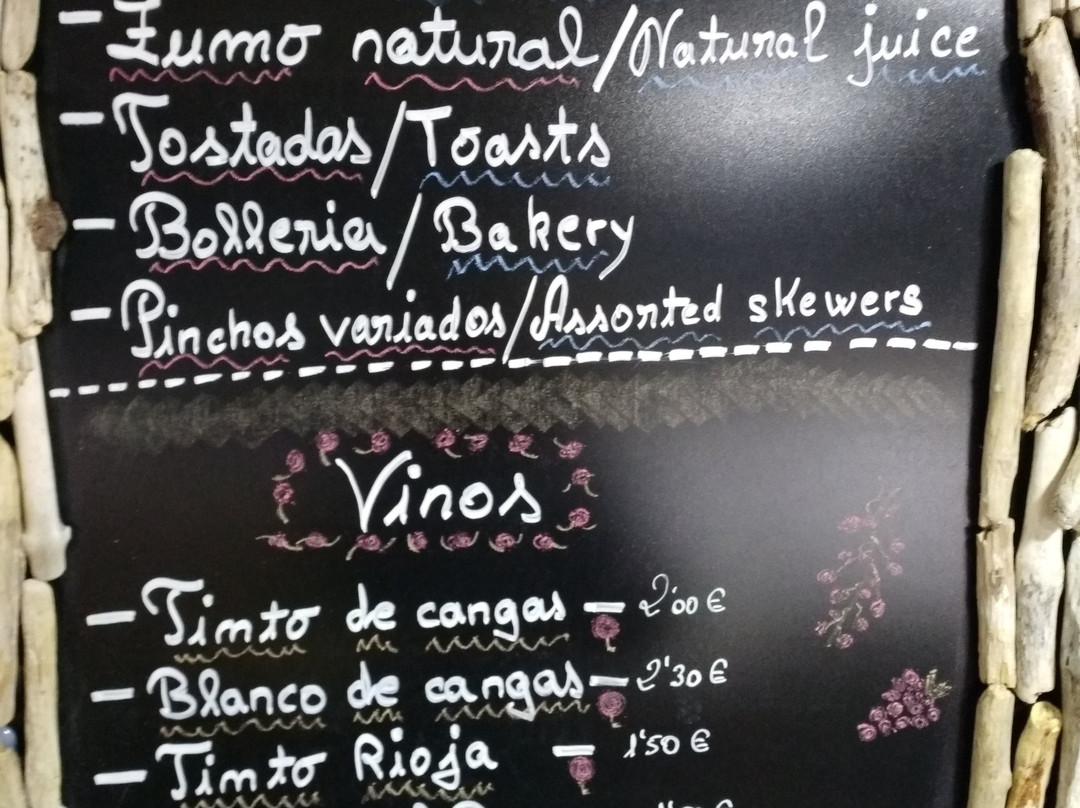 - Zumo natural/Natural juice
- Tostadas/Toasts
- Bolleria/Bakery
- Pinchos variados/Assorted skewers
Vinos
- Tinto de cangas - 2'00 €
- Blanco de cangas - 2'30 €
- Tinto Rioja - 1'50 €